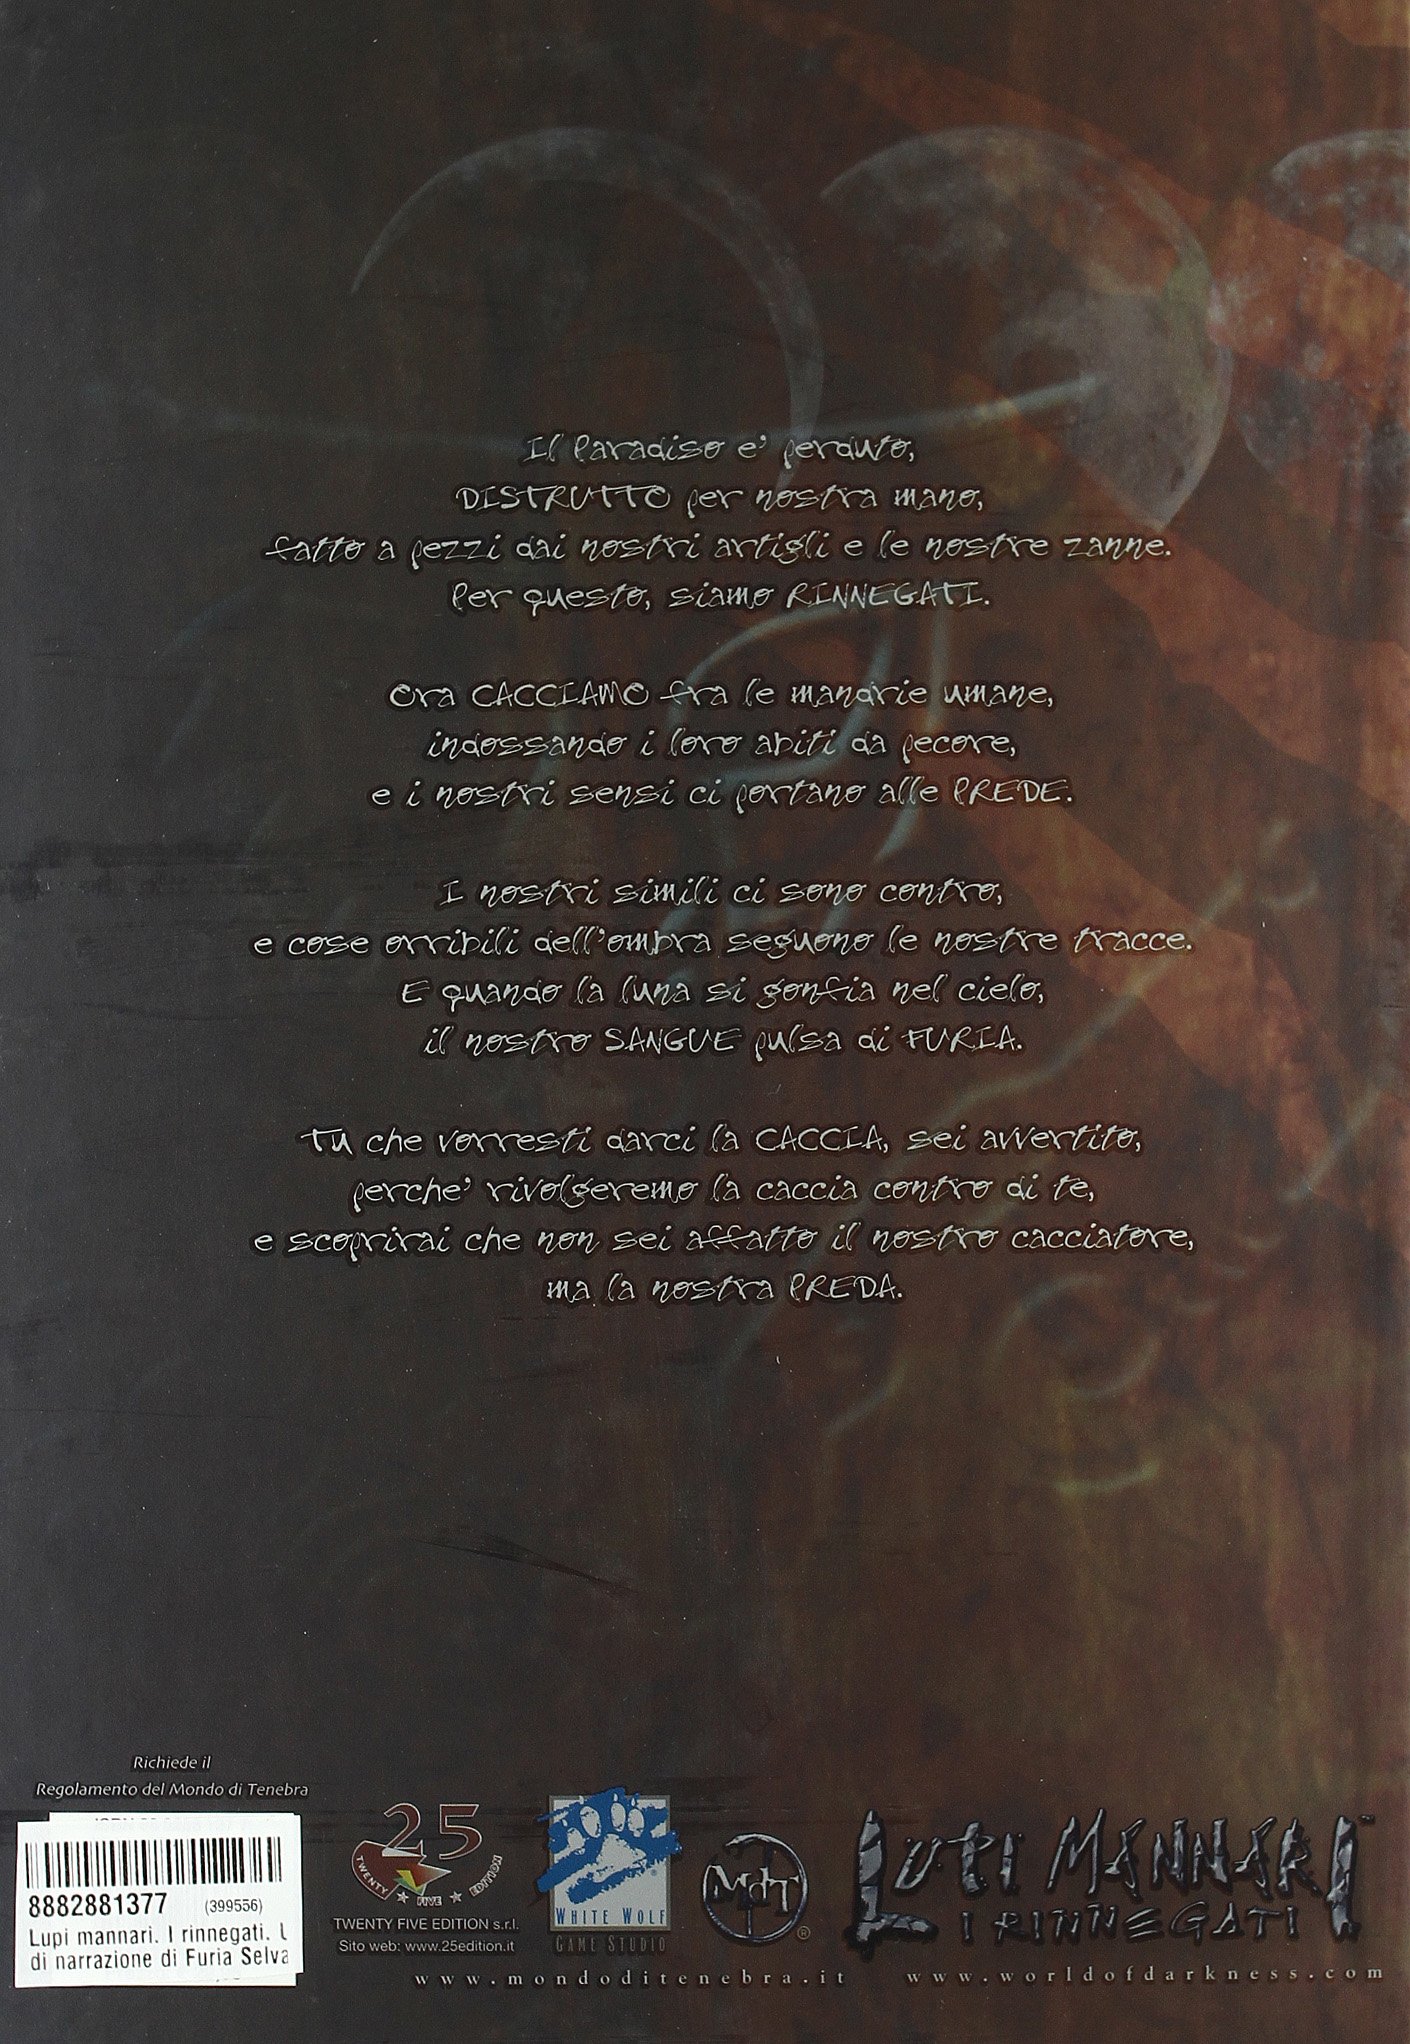 Il Paradiso e' perduto,
DISTRUTTO per nostra mano,
fatto a pezzi dai nostri artigli e le nostre zanne.
Per questo, siamo RINNEGATI.
Ora CACCIAMO fra le mandrie umane,
indossando i loro abiti da pecore,
e i nostri sensi ci portano alle PREDE.
I nostri simili ci sono contro,
e cose orribili dell'ombra seguono le nostre tracce.
E quando la luna si gonfia nel cielo,
il nostro SANGUE pulsa di FURIA.
Tu che vorresti darci la CACCIA, sei avvertito,
perche' rivolgeremo la caccia contro di te,
e scoprirai che non sei affatto il nostro cacciatore,
ma la nostra PREDA.
Richiede il
Regolamento del Mondo di Tenebra
8882881377 (399556)
Lupi mannari. I rinnegati. U
di narrazione di Furia Selva
25
TWENTY FIVE EDITION
TWENTY FIVE EDITION s.r.l.
Sito web: www.25edition.it
WHITE WOLF
GAME STUDIO
MdT ®
LUPI MANNARI™
I RINNEGATI
www.mondoditenebra.it
www.worldofdarkness.com